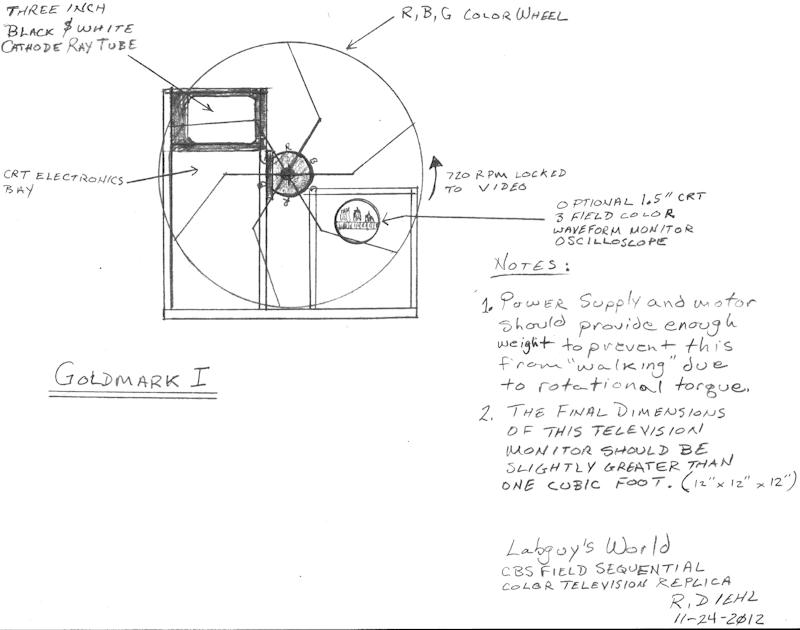 THREE INCH
BLACK & WHITE
CATHODE RAY TUBE
R, B, G COLOR WHEEL
CRT ELECTRONICS
BAY
720 RPM LOCKED
TO VIDEO
OPTIONAL 1.5" CRT
3 FIELD COLOR
WAVEFORM MONITOR
OSCILLOSCOPE
NOTES:
1. Power Supply and motor
should provide enough
weight to prevent this
from "walking" due
to rotational torque.
2. THE FINAL DIMENSIONS
OF THIS TELEVISION
MONITOR SHOULD BE
SLIGHTLY GREATER THAN
ONE CUBIC FOOT. (12" x 12" x 12")
GOLDMARK I
Labguy's World
CBS FIELD SEQUENTIAL
COLOR TELEVISION REPLICA
R. DIEHL
11-24-2012